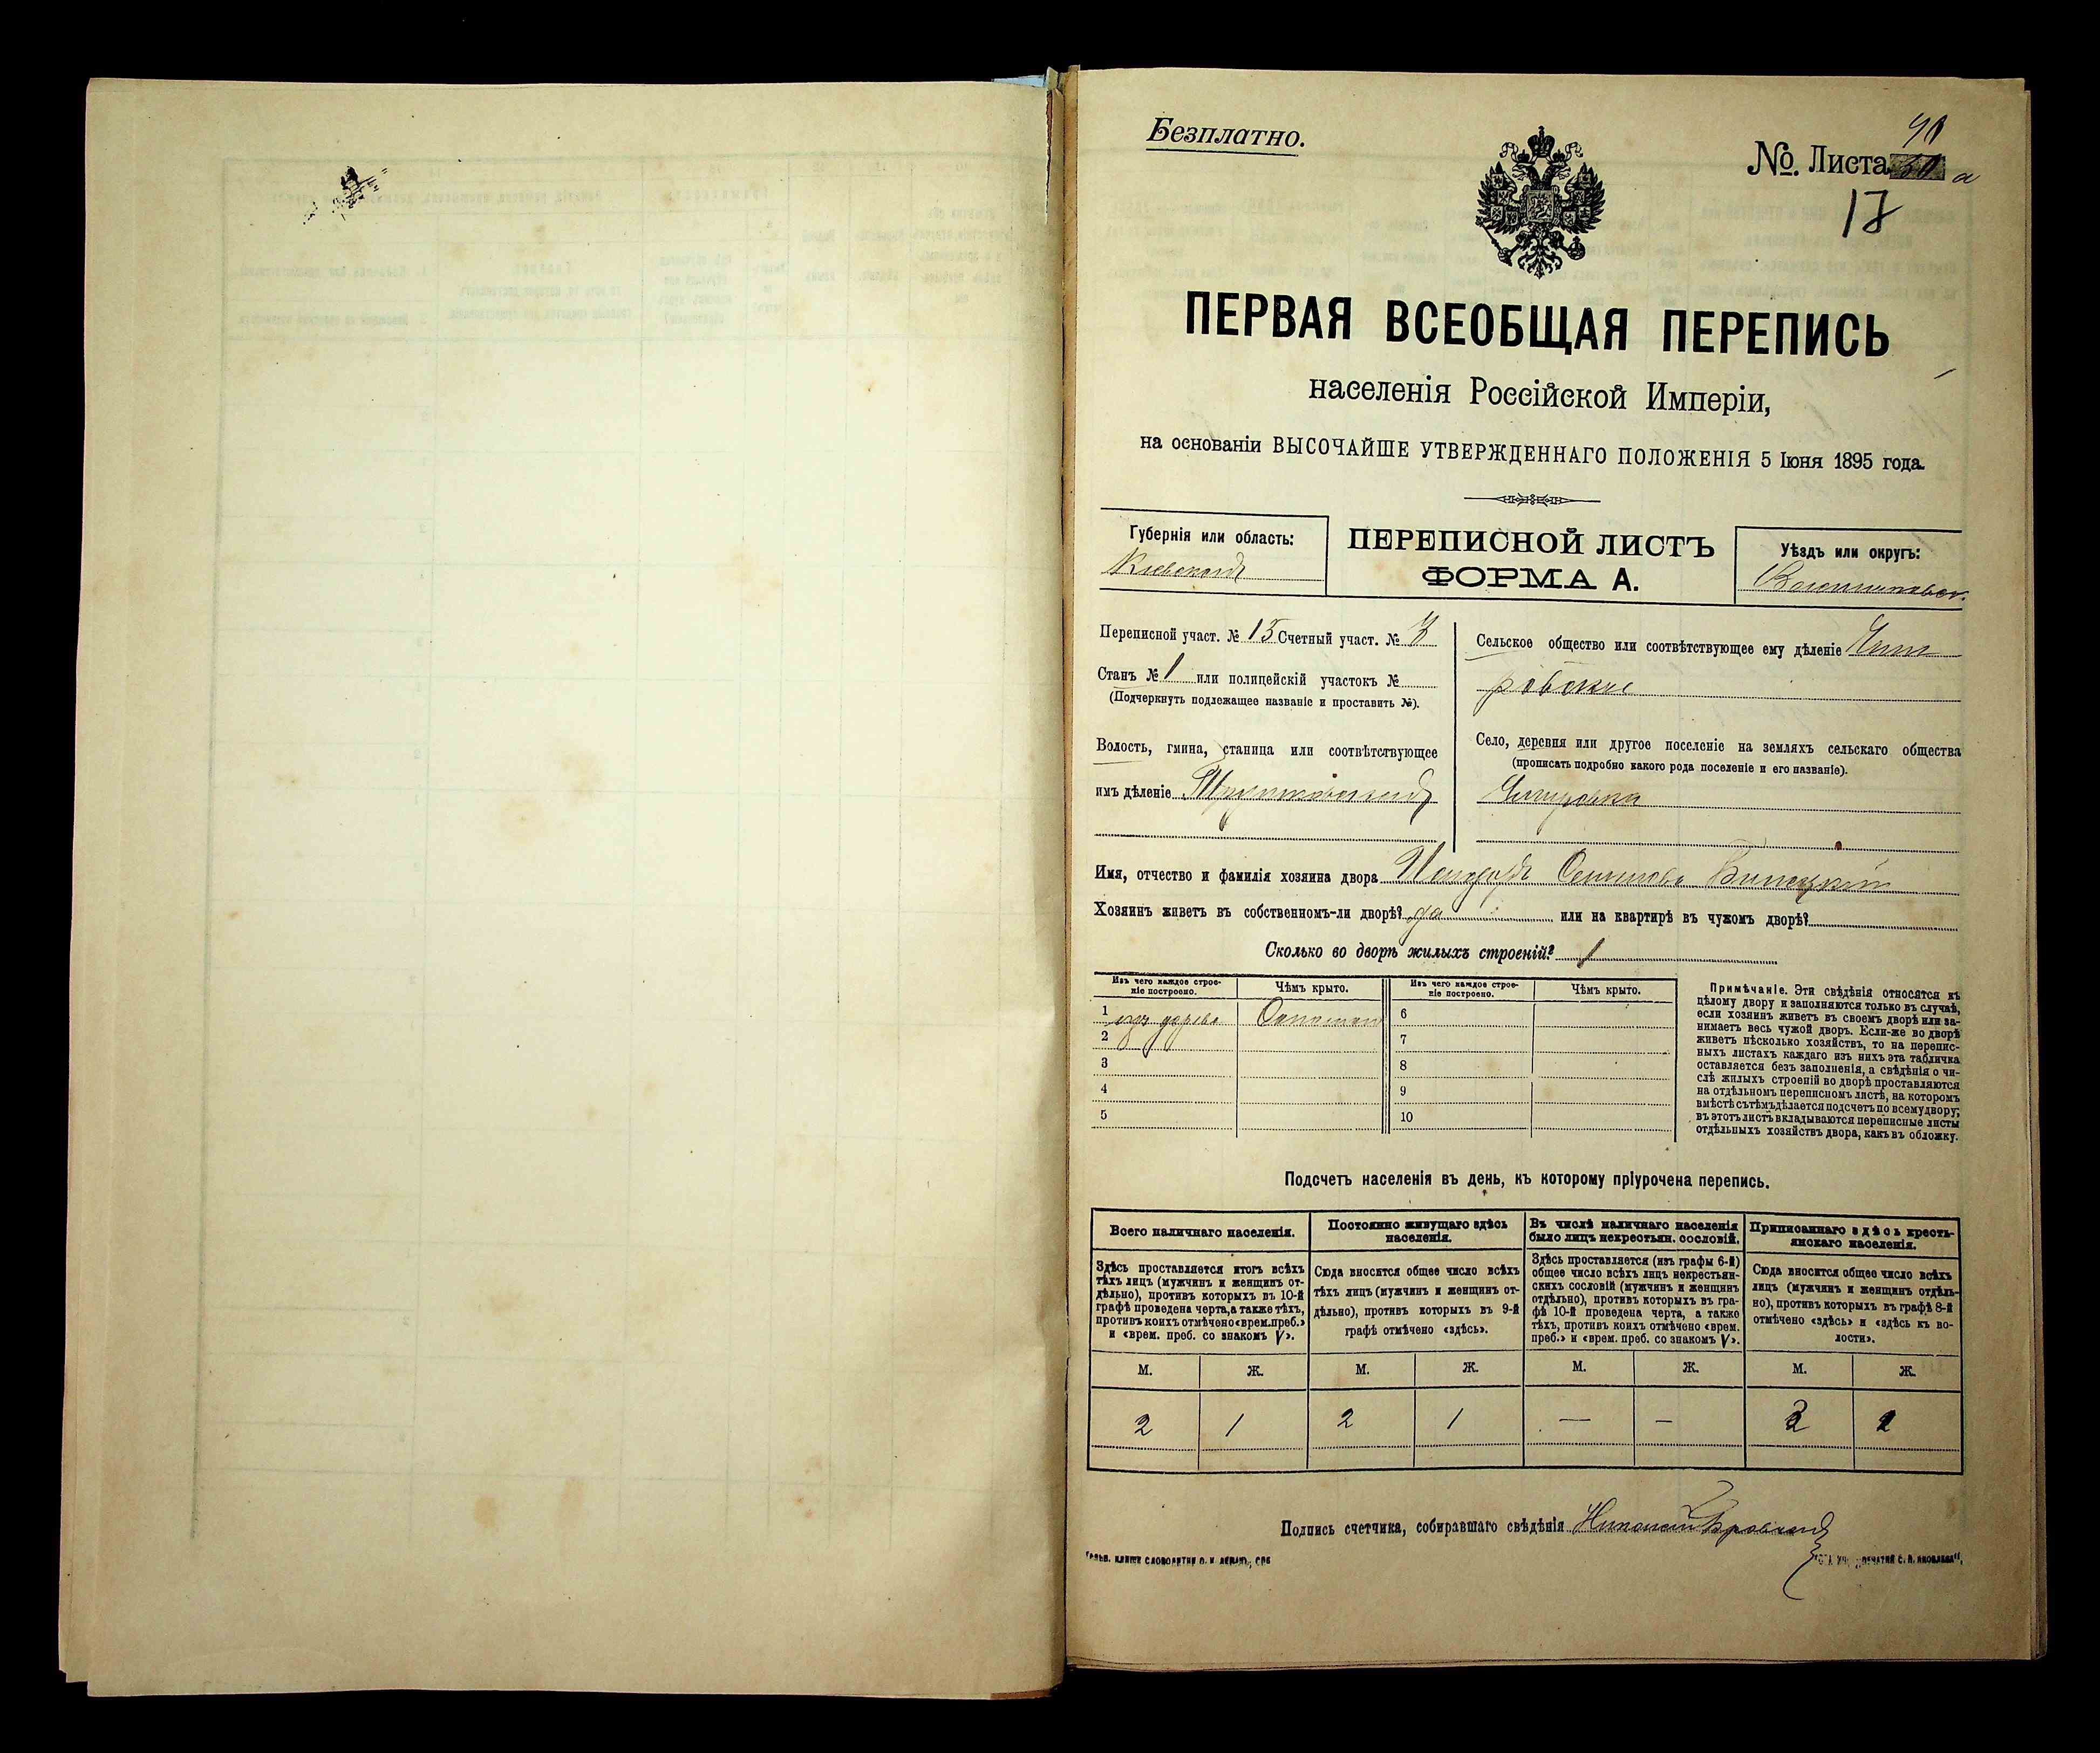 Безплатно.
№. Листа а
17
ПЕРВАЯ ВСЕОБЩАЯ ПЕРЕПИСЬ
населенія Россійской Имперіи,
на основаніи ВЫСОЧАЙШЕ УТВЕРЖДЕННАГО ПОЛОЖЕНІЯ 5 Іюня 1895 года.
Губернія или область:
Кіевская
ПЕРЕПИСНОЙ ЛИСТЪ
ФОРМА А.
Уѣздъ или округъ:
Переписной участ. № 15 Счетный участ. № 3
Станъ № 1 или полицейскій участокъ №
(Подчеркнуть подлежащее названіе и проставить №).
Волость, гмина, станица или соотвѣтствующее
имъ дѣленіе
Сельское общество или соотвѣтствующее ему дѣленіе
Село, деревня или другое поселеніе на земляхъ сельскаго общества
(прописать подробно какого рода поселеніе и его названіе).
Имя, отчество и фамилія хозяина двора
Хозяинъ живетъ въ собственномъ-ли дворѣ? да или на квартирѣ въ чужомъ дворѣ?
Сколько во дворѣ жилыхъ строеній? 1
Изъ чего каждое строе-
ніе построено.
Чѣмъ крыто.
Изъ чего каждое строе-
ніе построено.
Чѣмъ крыто.
1 изъ дерева Соломой
2
3
4
5
6
7
8
9
10
Примѣчаніе. Эти свѣдѣнія относятся къ
цѣлому двору и заполняются только въ случаѣ,
если хозяинъ живетъ въ своемъ дворѣ или за-
нимаетъ весь чужой дворъ. Если-же во дворѣ
живетъ нѣсколько хозяйствъ, то на перепис-
ныхъ листахъ каждаго изъ нихъ эта табличка
оставляется безъ заполненія, а свѣдѣнія о чи-
слѣ жилыхъ строеній во дворѣ проставляются
на отдѣльномъ переписномъ листѣ, на которомъ
вмѣстѣ съ тѣмъ дѣлается подсчетъ по всему двору;
въ этотъ листъ вкладываются переписные листы
отдѣльныхъ хозяйствъ двора, какъ въ обложку.
Подсчетъ населенія въ день, къ которому пріурочена перепись.
Всего наличнаго населенія.
Здѣсь проставляется итогъ всѣхъ
тѣхъ лицъ (мужчинъ и женщинъ от-
дѣльно), противъ которыхъ въ 10-й
графѣ проведена черта, а также тѣхъ,
противъ коихъ отмѣчено «врем. преб.»
и «врем. преб. со знакомъ V».
Постоянно живущаго здѣсь
населенія.
Сюда вносится общее число всѣхъ
тѣхъ лицъ (мужчинъ и женщинъ от-
дѣльно), противъ которыхъ въ 9-й
графѣ отмѣчено «здѣсь».
Въ числѣ наличнаго населенія
было лицъ некрестьян. сословій.
Здѣсь проставляется (изъ графы 6-й)
общее число всѣхъ лицъ некрестьян-
скихъ сословій (мужчинъ и женщинъ
отдѣльно), противъ которыхъ въ гра-
фѣ 10-й проведена черта, а также
тѣхъ, противъ коихъ отмѣчено «врем.
преб.» и «врем. преб. со знакомъ V».
Приписаннаго здѣсь кресть-
янскаго населенія.
Сюда вносится общее число всѣхъ
лицъ (мужчинъ и женщинъ отдѣль-
но), противъ которыхъ въ графѣ 8-й
отмѣчено «здѣсь» и «здѣсь къ во-
лости».
М. Ж. М. Ж. М. Ж. М. Ж.
2 1 2 1 — —
Подпись счетчика, собиравшаго свѣдѣнія Николай